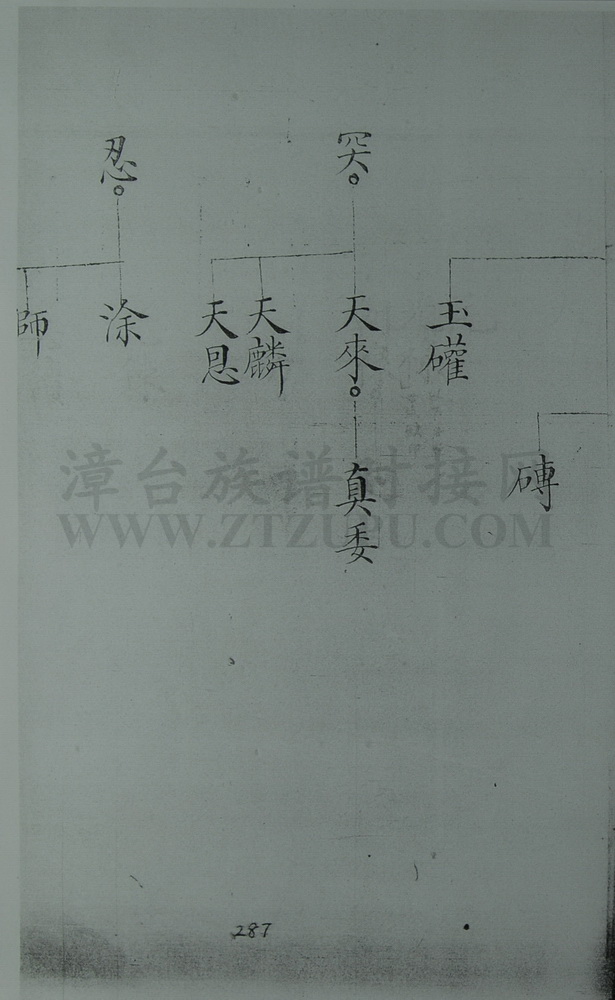 磚
玉礶
罙
天來
真委
天麟
天恩
忍
涂
師
漳台族谱对接网
WWW.ZTZUPU.COM
287